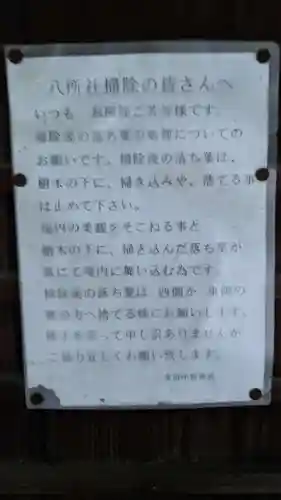 八所社掃除の皆さんへ
いつも お掃除ご苦労様です。
掃除後の落ち葉の処理についての
お願いです。掃除後の落ち葉は、
樹木の下に、掃き込みや、捨てる事
は止めて下さい。
境内の美観をそこねる事と
樹木の下に、掃き込んだ落ち葉が
風にて境内に舞い込む為です。
掃除後の落ち葉は 西側か 東側の
の方へ捨てる様にお願いします。
って申し訳ありませんが
ご協力宜しくお願い致します。